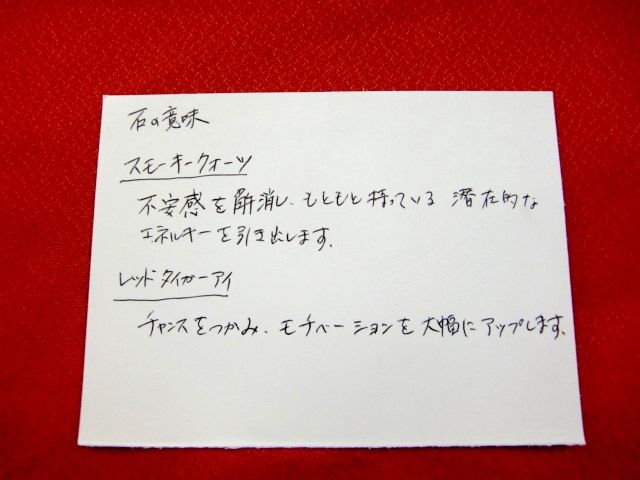 石の意味
スモーキークォーツ
不安感を解消し、もともと持っている 潜在的な
エネルギーを引き出します。
レッドタイガーアイ
チャンスをつかみ、モチベーションを大幅にアップします。